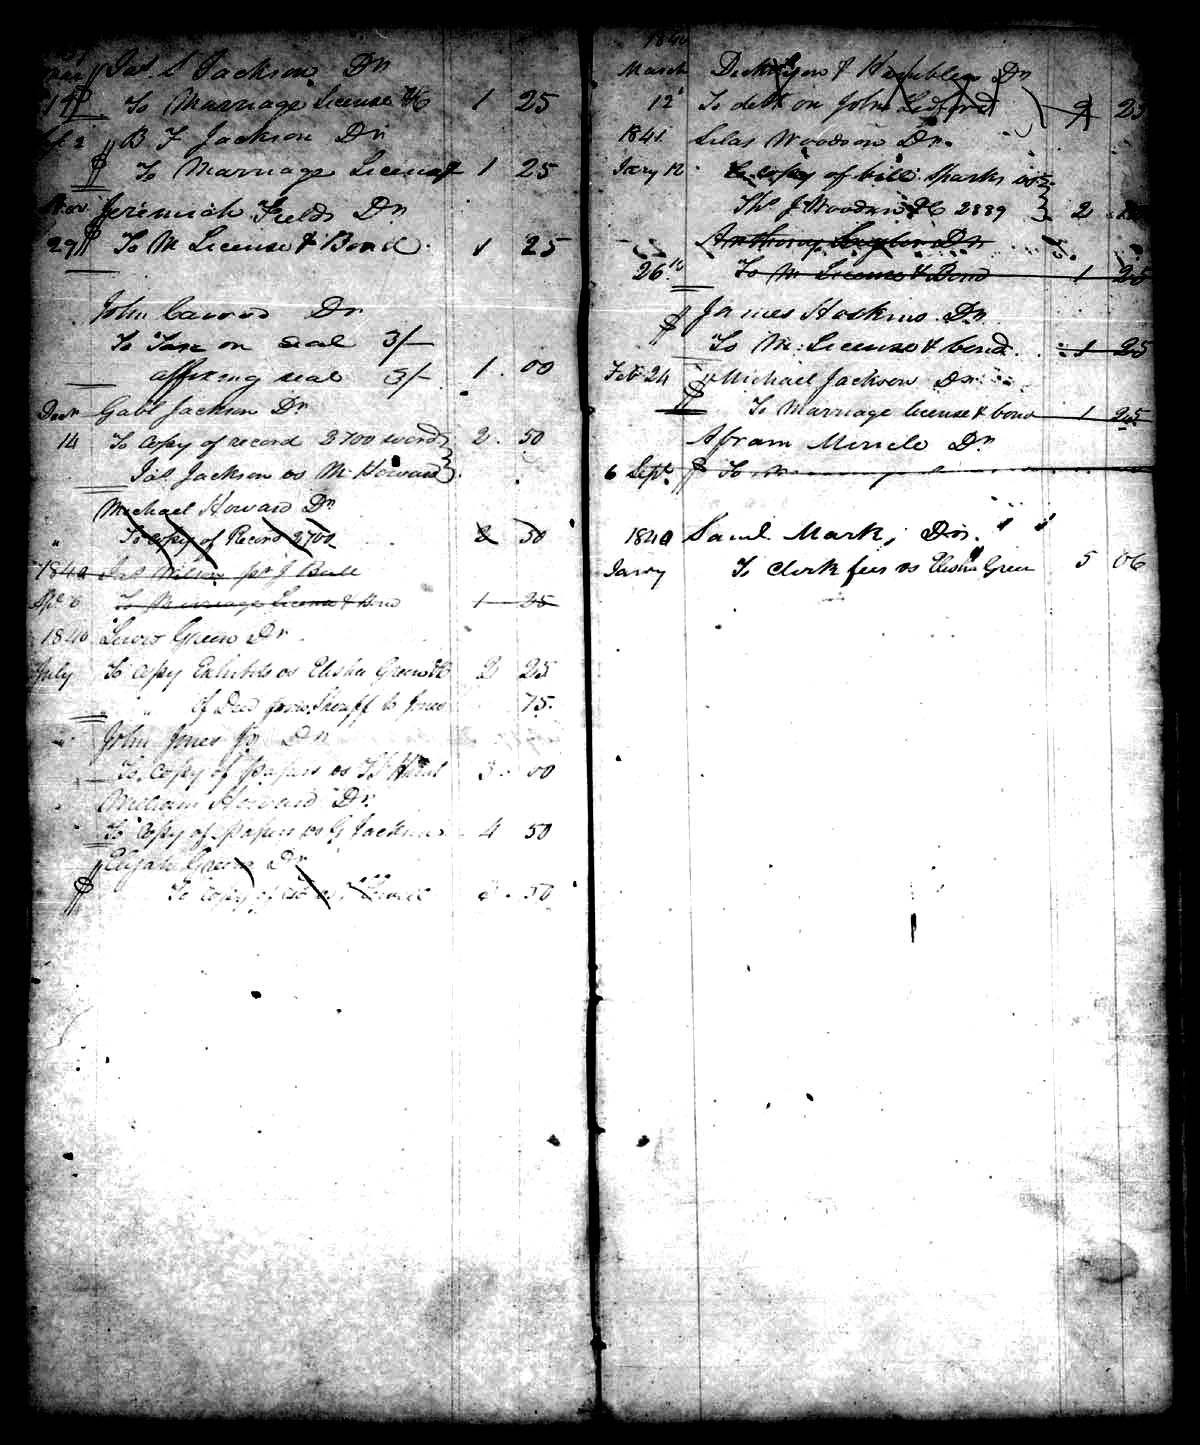 Jas. S Jackson Dr
19 To Marriage License &C 1 25
2 B F Jackson Dr
To Marriage License 1 25
Nov Jeremiah Fields Dr
29 To M License & Bond 1 25
John Cawood Dr
To Tax on seal 3/-
affixing seal 3/- 1.00
Decr Gabl Jackson Dr
14 To Copy of record 2700 words 2.50
Jas. Jackson vs M Howard
Michael Howard Dr
" To Copy of Record 2700 2 50
1840 Jas Wilson for J Ball
6 To Marriage License & Bond 1 25
1840 Lewis Green Dr
July To Copy Exhibits vs Elisha Green &C 2 25
" " of Deed from Sheriff to Jones 75
" John Jones Jr Dr
To Copy of Papers vs 3.00
William Howard Dr.
To Copy of Papers vs G Jackson 4 50
Elijah Green Dr
To Copy of vs 50
1840
March & Dr
12 To debt on John Ledford 2
1841 Silas Woodson Dr.
Jany 12 To Copy of bill Sparks vs
Ths J Woodson &C 2889 2
Anthony Dr
26th To M License & Bond 1 25
James Hoskins Dr
To M. License & bond 1 25
Feb 24 Michael Jackson Dr
To Marriage license & bond 1 25
Abram Dr
6 Sept To M
1840 Saml Mark, Dr.
Jany To Clerk fees vs Elisha Green 5 06